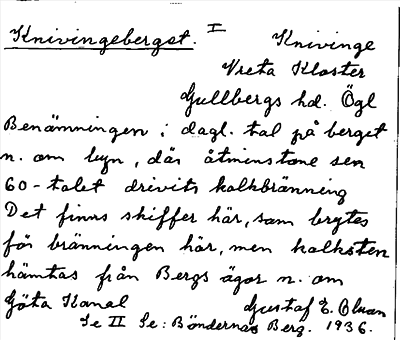 Knivingeberget. I Knivinge
Vreta Kloster
Gullbergs hd. Ögl
Benämningen i dagl. tal på berget
n. om byn, där åtminstone sen
60-talet drivits kalkbränning
Det finns skiffer här, som brytes
för bränningen här, men kalksten
hämtas från Bergs ägor n. om
Göta Kanal Gustaf E. Olsson
Se II Se: Böndernas Berg. 1936.